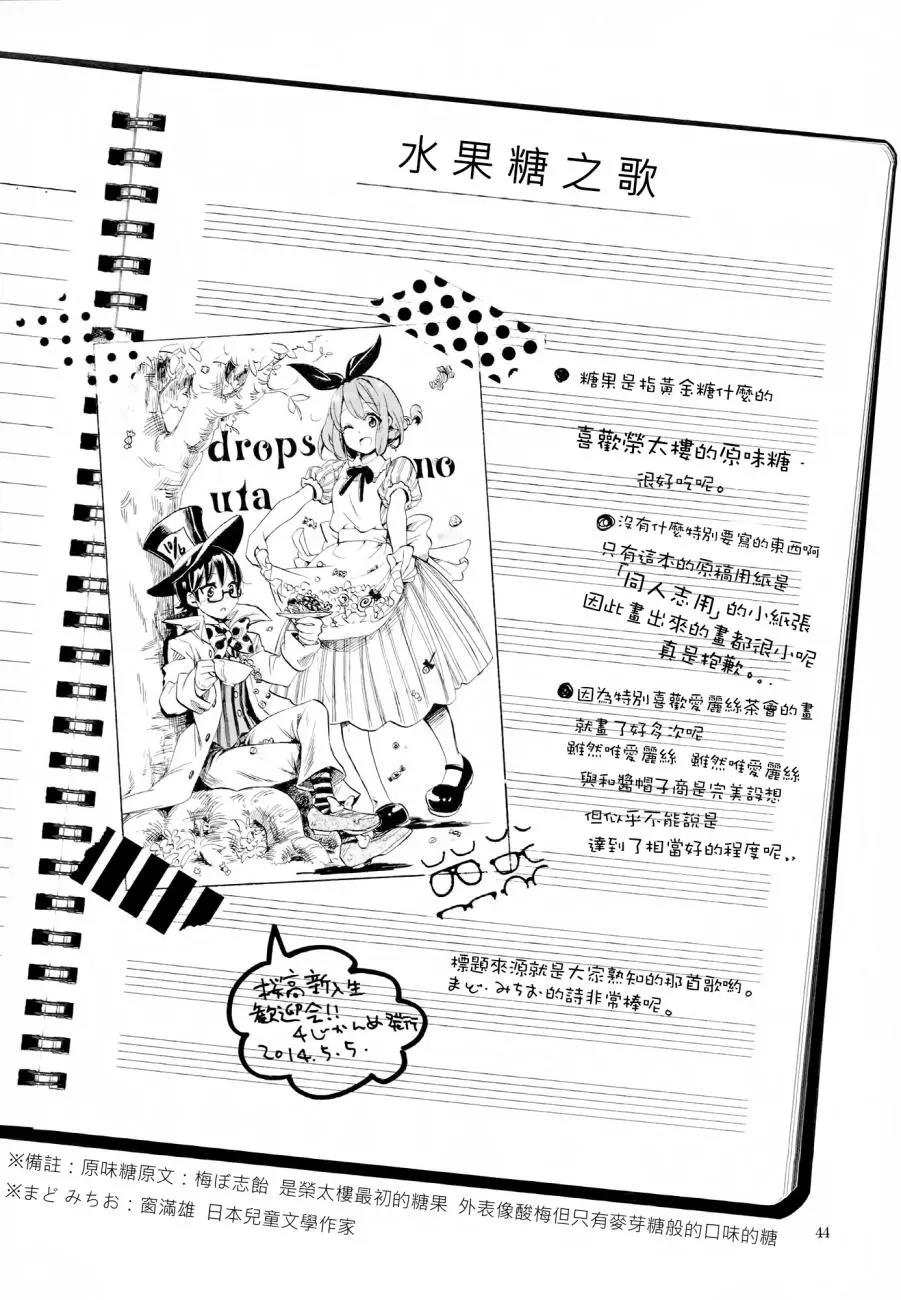 水果糖之歌
drops
no
uta
10/6
糖果是指黃金糖什麼的
喜歡榮太樓的原味糖.
很好吃呢。
沒有什麼特別要寫的東西啊
只有這本的原稿用紙是
「同人志用」的小紙張
因此畫出來的畫都很小呢
真是抱歉。..
因為特別喜歡愛麗絲茶會的畫
就畫了好多次呢
雖然唯愛麗絲 雖然唯愛麗絲
與和醬帽子商是完美設想
但似乎不能說是
達到了相當好的程度呢..
標題來源就是大家熟知的那首歌喲。
まど・みちお的詩非常棒呢。
桜高新入生
歓迎会!!
4じかんめ発行
2014.5.5.
※備註：原味糖原文：梅ぼ志飴 是榮太樓最初的糖果 外表像酸梅但只有麥芽糖般的口味的糖
※まど みちお：窗滿雄 日本兒童文學作家
44